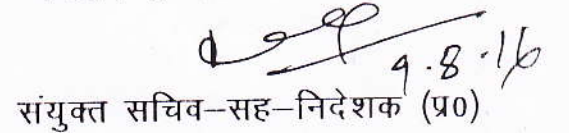 9.8.16
संयुक्त सचिव–सह–निदेशक (प्र0)